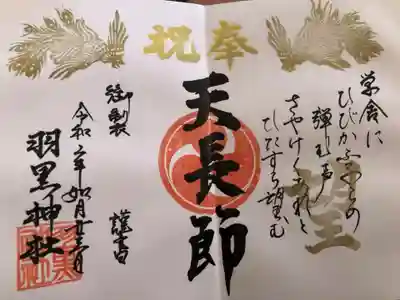 奉祝
学舎に
ひびかふ子らの
弾む声
さやけくあれと
ひたすら望む
望
天長節
御製 謹書
令和二年如月廿三日
羽黒神社